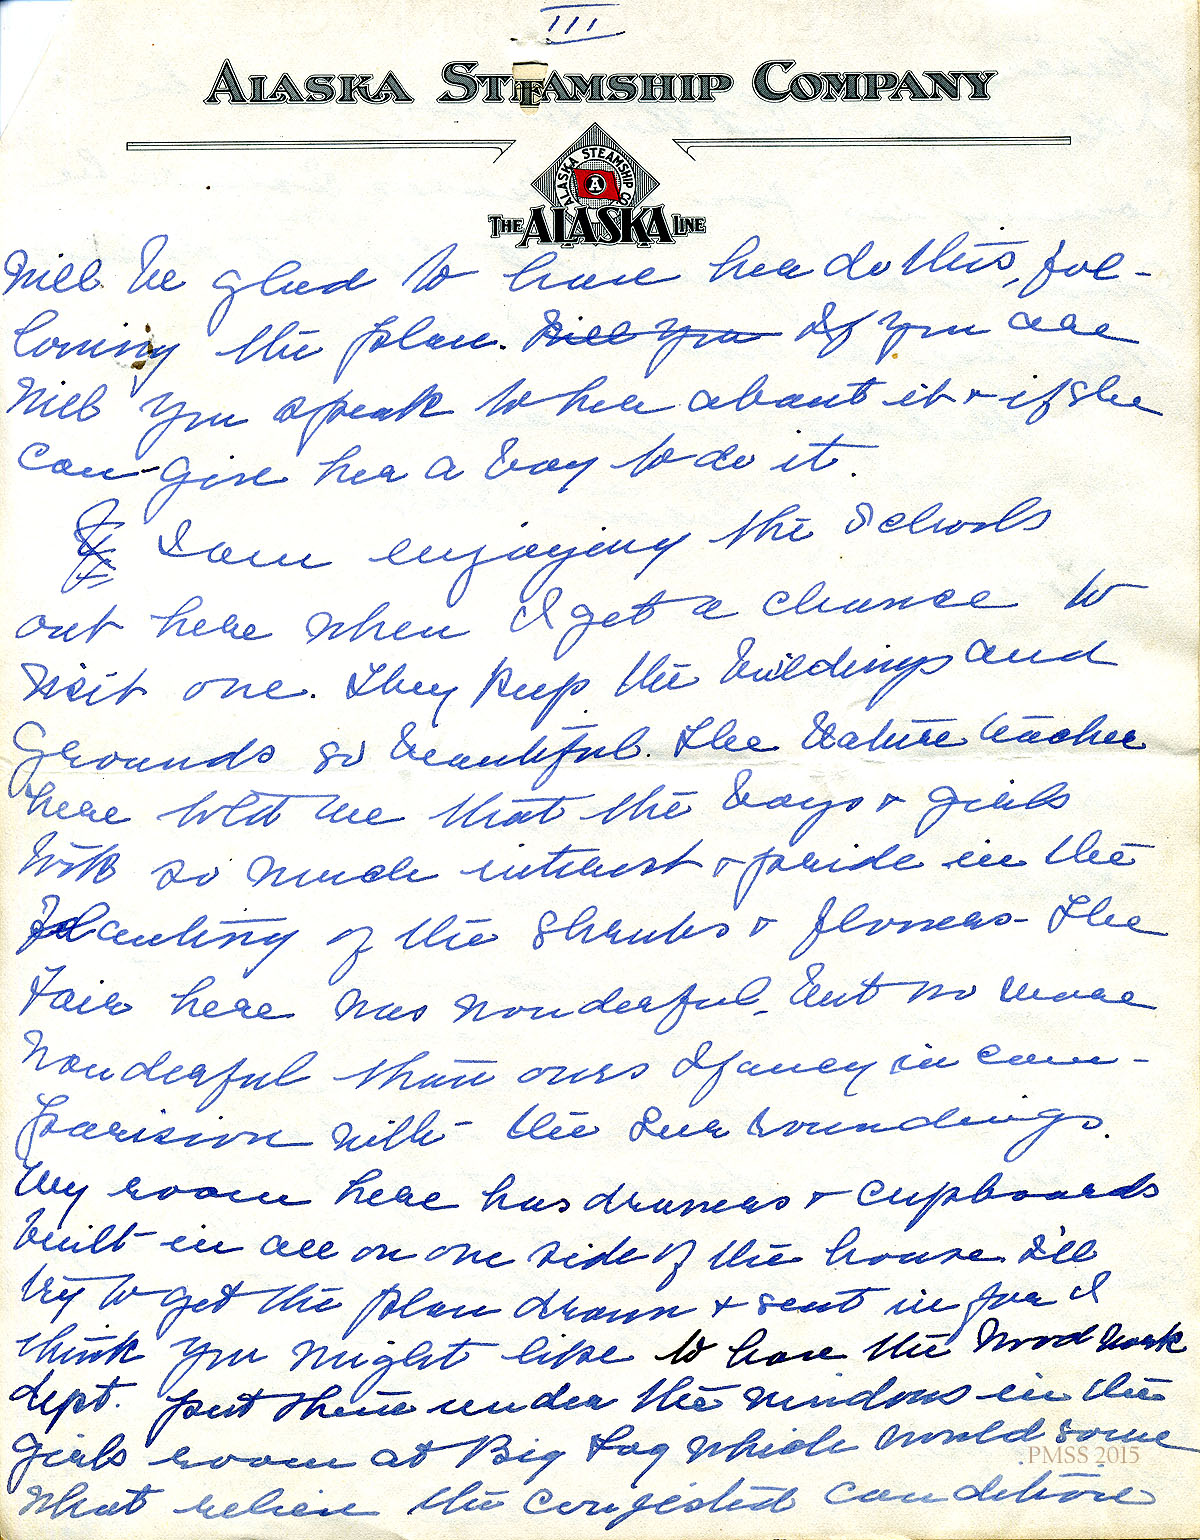 III
ALASKA STEAMSHIP COMPANY
ALASKA STEAMSHIP CO.
A
THE ALASKA LINE
Will be glad to have her do this, fol-
lowing the plan. Will you If you are
will you speak to her about it & if she
can give her a boy to do it.
I am enjoying the schools
out here when I get a chance to
visit one. They keep the buildings and
grounds so beautiful. The Nature teacher
here told me that the boys & girls
took so much interest & pride in the
planting of the shrubs & flowers - The
Fair here was wonderful, but no more
wonderful than ours I fancy in com-
parision with the surroundings.
My room here has drawers & cupboards
built in all on one side of the house I'll
try to get the plan drawn & sent in for I
think you might like to have the wood work
dept. put them under the windows in the
girls room at Big Log which would some
what relieve the congested condition
PMSS 2015